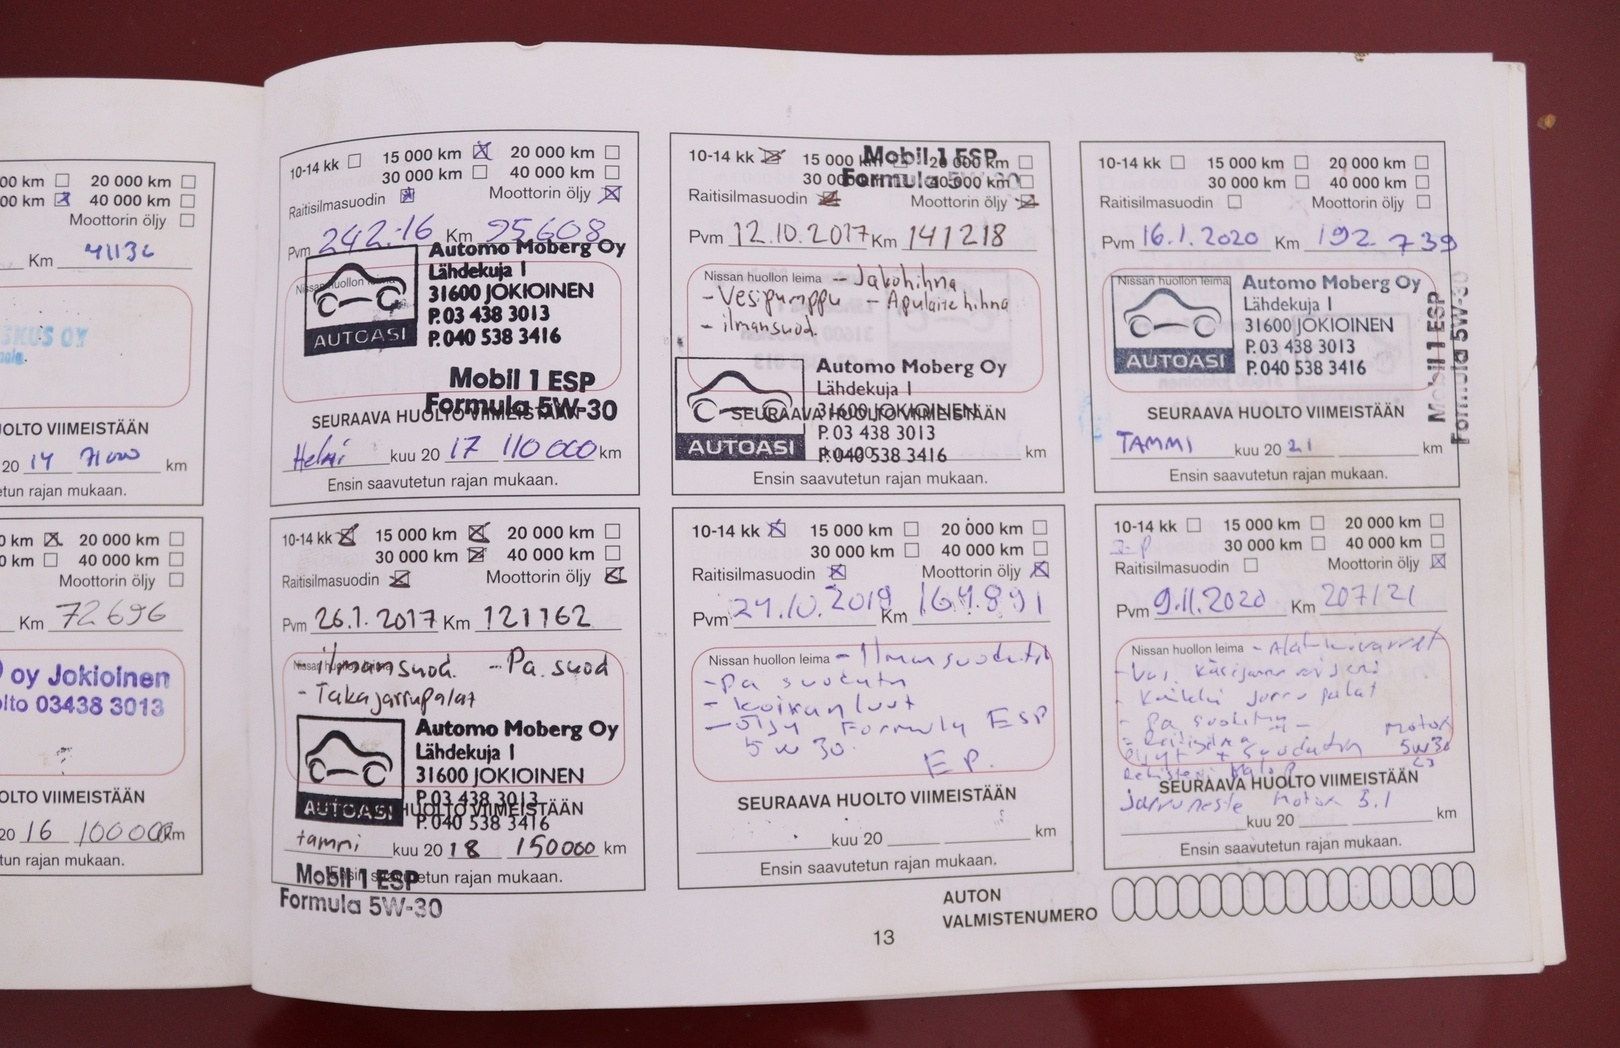 00 km ☐ 20 000 km ☐
00 km ☒ 40 000 km ☐
Moottorin öljy ☐
Km 41136
SKUS OY
UOLTO VIIMEISTÄÄN
20 14 71000 km
etun rajan mukaan.
0 km ☒ 20 000 km ☐
0 km ☐ 40 000 km ☐
Moottorin öljy ☐
Km 72696
oy Jokioinen
olto 03438 3013
OLTO VIIMEISTÄÄN
20 16 100000 km
tun rajan mukaan.
10-14 kk ☐ 15 000 km ☒ 20 000 km ☐
30 000 km ☐ 40 000 km ☐
Raitisilmasuodin ☒ Moottorin öljy ☒
Pvm 24.2.-16 Km 95608
Nissan huollon leima
Automo Moberg Oy
Lähdekuja 1
31600 JOKIOINEN
P. 03 438 3013
P. 040 538 3416
AUTOASI
Mobil 1 ESP
Formula 5W-30
SEURAAVA HUOLTO VIIMEISTÄÄN
Helmi kuu 20 17 110 000 km
Ensin saavutetun rajan mukaan.
10-14 kk ☒ 15 000 km ☒ 20 000 km ☐
30 000 km ☒ 40 000 km ☐
Raitisilmasuodin ☒ Moottorin öljy ☒
Pvm 26.1. 2017 Km 121162
Nissan huollon leima
- ilmansuod. - Pa. suod
- Takajarrupalat
Automo Moberg Oy
Lähdekuja 1
31600 JOKIOINEN
P. 03 438 3013
P. 040 538 3416
AUTOASI
SEURAAVA HUOLTO VIIMEISTÄÄN
tammi kuu 20 18 150000 km
Ensin saavutetun rajan mukaan.
Mobil 1 ESP
Formula 5W-30
10-14 kk ☒ 15 000 km ☐ 20 000 km ☐
30 000 km ☐ 40 000 km ☐
Mobil 1 ESP
Formula 5W-30
Raitisilmasuodin ☒ Moottorin öljy ☒
Pvm 12.10.2017 Km 141218
Nissan huollon leima - Jakohihna
- Vesipumppu - Apulaite hihna
- ilmansuod.
Automo Moberg Oy
Lähdekuja 1
31600 JOKIOINEN
P. 03 438 3013
P. 040 538 3416
AUTOASI
SEURAAVA HUOLTO VIIMEISTÄÄN
kuu 20 km
Ensin saavutetun rajan mukaan.
10-14 kk ☒ 15 000 km ☐ 20 000 km ☐
30 000 km ☐ 40 000 km ☐
Raitisilmasuodin ☒ Moottorin öljy ☒
Pvm 24.10.2018 Km 164.891
Nissan huollon leima - Ilmansuodatin
- Pa suodatin
- koiranluut
- öljy Formula ESP
5w30.
EP.
SEURAAVA HUOLTO VIIMEISTÄÄN
kuu 20 km
Ensin saavutetun rajan mukaan.
10-14 kk ☐ 15 000 km ☐ 20 000 km ☐
30 000 km ☐ 40 000 km ☐
Raitisilmasuodin ☐ Moottorin öljy ☐
Pvm 16.1. 2020 Km 192 739
Nissan huollon leima
Automo Moberg Oy
Lähdekuja 1
31600 JOKIOINEN
P. 03 438 3013
P. 040 538 3416
AUTOASI
Mobil 1 ESP
Formula 5W-30
SEURAAVA HUOLTO VIIMEISTÄÄN
TAMMI kuu 20 21 km
Ensin saavutetun rajan mukaan.
10-14 kk ☐ 15 000 km ☐ 20 000 km ☐
30 000 km ☐ 40 000 km ☐
Raitisilmasuodin ☐ Moottorin öljy ☒
Pvm 9.11.2020 Km 207121
Nissan huollon leima - Alatukivarret
- Kaikki jarru palat
- Pa suodatin
- Raitisilma suodatin
Motox
5w30
C3
SEURAAVA HUOLTO VIIMEISTÄÄN
Jarruneste Motox 5.1
kuu 20 km
Ensin saavutetun rajan mukaan.
AUTON
VALMISTENUMERO
13